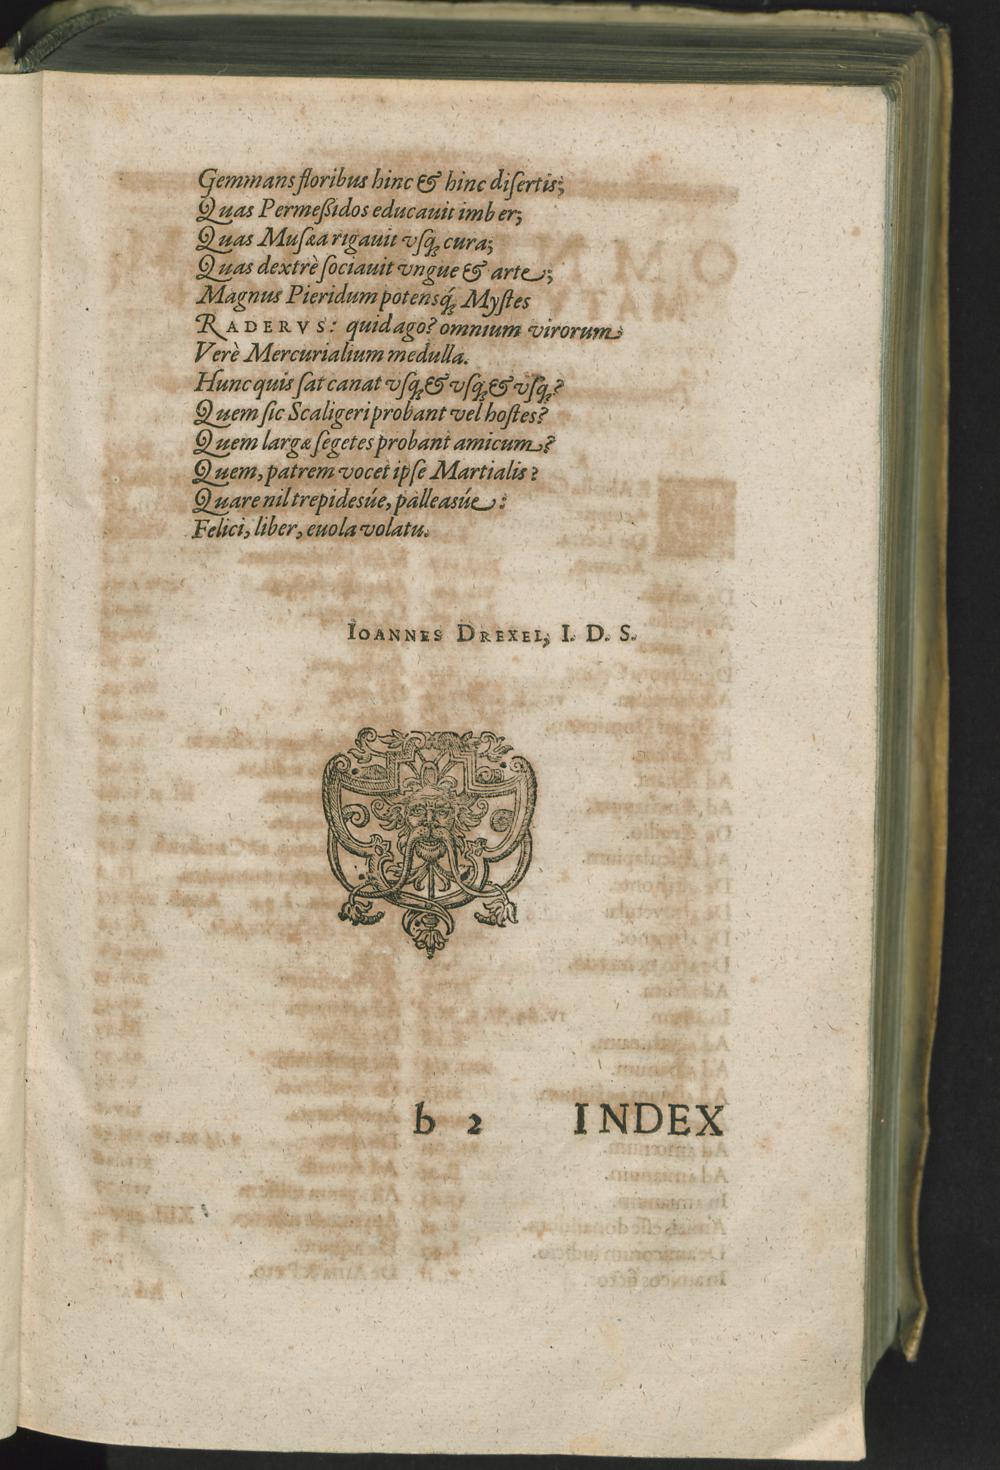 Gemmans floribus hinc & hinc diſertis;
Quas Permeßidos educauit imber;
Quas Muſæa rigauit vſq; cura;
Quas dextrè ſociauit vngue & arte;
Magnus Pieridum potensq́; Myſtes
RADERVS: quid ago? omnium virorum
Verè Mercurialium medulla.
Hunc quis ſat canat vſq; & vſq; & vſq;?
Quem ſic Scaligeri probant vel hoſtes?
Quem largæ ſegetes probant amicum?
Quem, patrem vocet ipſe Martialis?
Quare nil trepidesúe, palleasúe:
Felici, liber, euola volatu.
IOANNES DREXEL, I. D. S.
b 2 INDEX